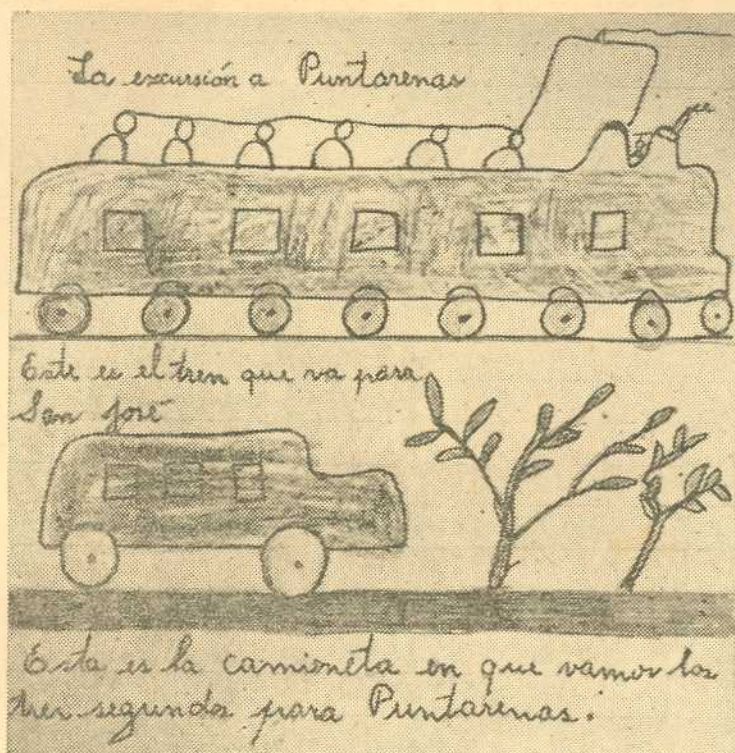 La excursión a Puntarenas
Este es el tren que va para
San José
Esta es la camioneta en que vamos los
tres segundos para Puntarenas.